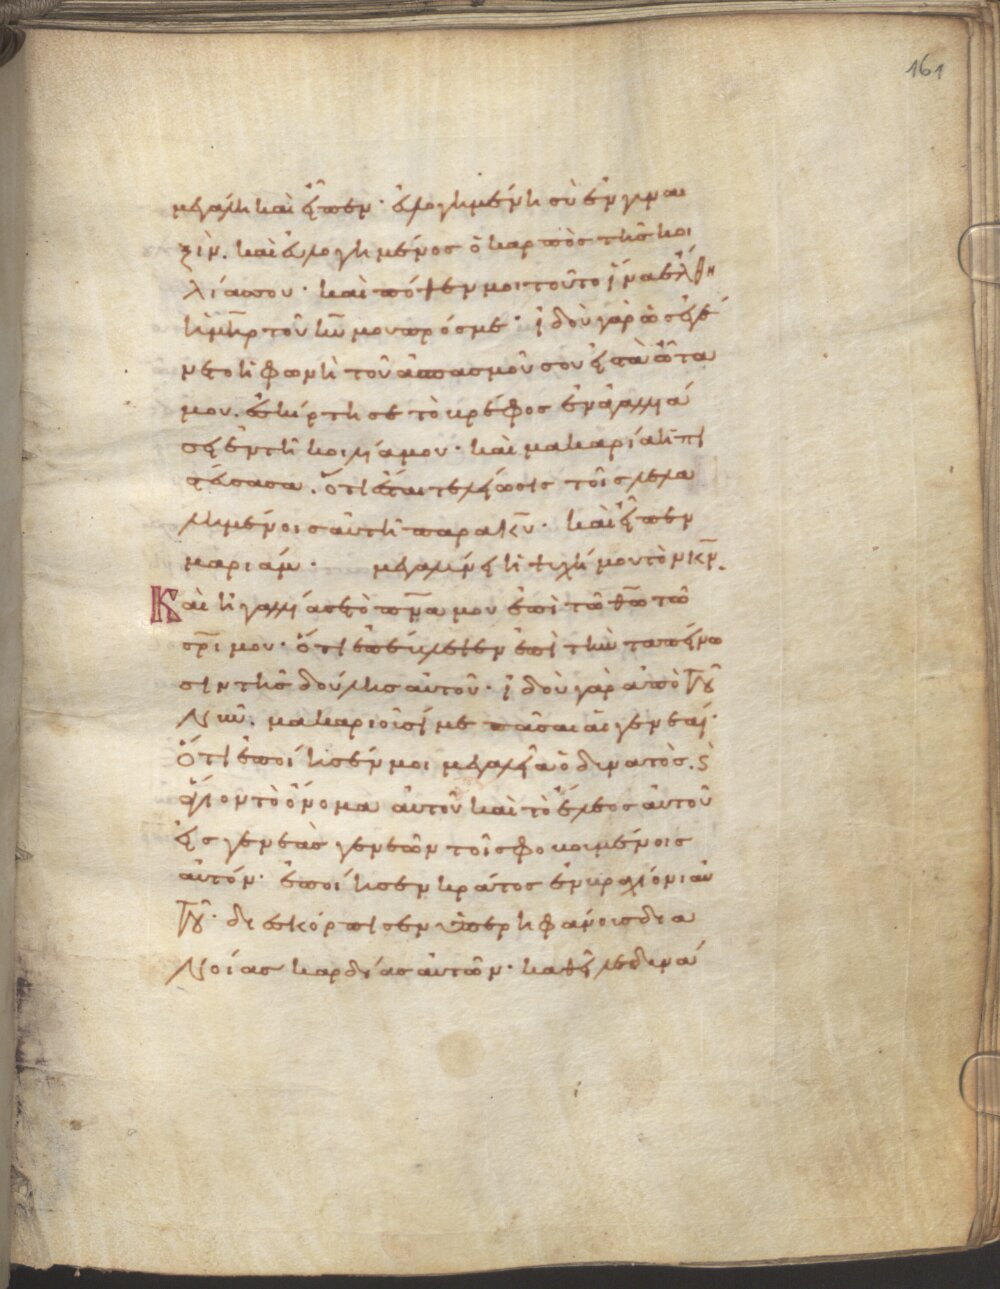 161
μεγάλη καὶ εἶπεν· εὐλογημένη σὺ ἐν γυναι
ξὶν. καὶ εὐλογημένος ὁ καρπὸς τῆς κοι
λίας σου· καὶ πόθεν μοι τοῦτο ἵνα ἔλθη
ἡ μηρ τοῦ κυ μου πρός με· ἰδοὺ γὰρ ὡς ἐγέ
νετο ἡ φωνὴ τοῦ ἀσπασμοῦ σου εἰς τὰ ὦτα
μου. ἐσκίρτησε τὸ βρέφος ἐν ἀγαλλιά
σει ἐν τῆ κοιλία μου· καὶ μακαρία ἡ πι
στεύσασα. ὅτι ἔσται τελείωσις τοῖς λελα
λημένοις αὐτῆ παρὰ κυ· καὶ εἶπεν
μαριάμ· μεγαλύνει ἡ ψυχή μου τὸν κν.
Καὶ ἠγαλλίασε τὸ πνα μου ἐπὶ τῶ θω τῶ
σρι μου· ὅτι ἐπέβλεψεν ἐπὶ τὴν ταπείνω
σιν τῆς δούλης αὐτοῦ· ἰδοὺ γὰρ ἀπὸ τοῦ
νῦν. μακαριοῦσί με πᾶσαι αἱ γενεαί·
Ὅτι ἐποίησέν μοι μεγαλεῖα ὁ δυνατὸς. ϗ
ἅγιον τὸ ὄνομα αὐτοῦ καὶ τὸ ἔλεος αὐτοῦ
εἰς γενεὰς γενεῶν τοῖς φοβουμένοις
αὐτόν· ἐποίησεν κράτος ἐν βραχίονι αὐ
τοῦ· διεσκόρπισεν ὑπερηφάνοις δια
νοίας καρδίας αὐτῶν· καθεῖλε δυνά